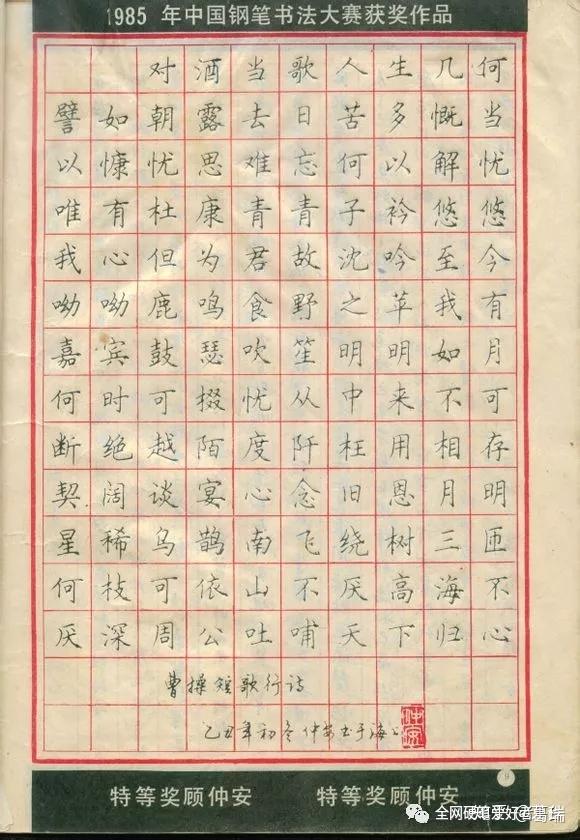 1985 年中国钢笔书法大赛获奖作品
对酒当歌人生几何
譬如朝露去日苦多慨当
以慷忧思难忘何以解忧
唯有杜康青青子衿悠悠
我心但为君故沈吟至今
呦呦鹿鸣食野之苹我有
嘉宾鼓瑟吹笙明明如月
何时可掇忧从中来不可
断绝越陌度阡枉用相存
契阔谈宴心念旧恩月明
星稀乌鹊南飞绕树三匝
何枝可依山不厌高海不
厌深周公吐哺天下归心
曹操短歌行诗
乙丑年初冬仲安书于海上
仲安
特等奖顾仲安 特等奖顾仲安
全网硬笔爱好者葛瑞